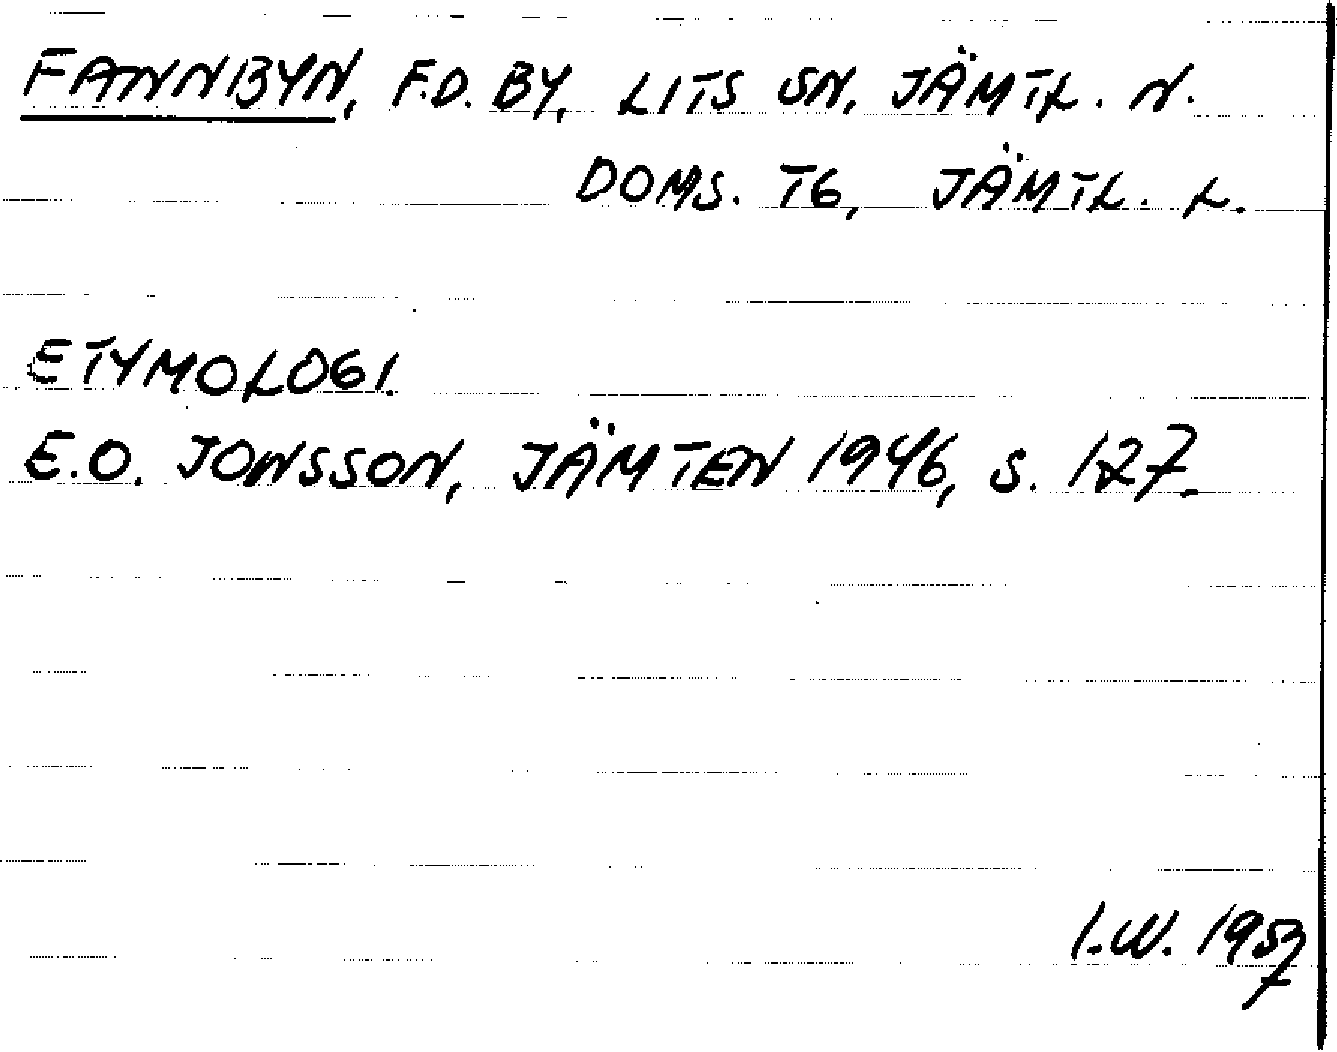 FANNBYN, F.D. BY, LITS SN, JÄMTL. N.
DOMS. TG, JÄMTL. L.
ETYMOLOGI.
E.O. JONSSON, JÄMTEN 1946, S. 127.
I.W. 1957